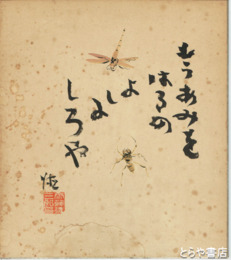 もうあみを
はるの
よしに
しろや
とらや書店